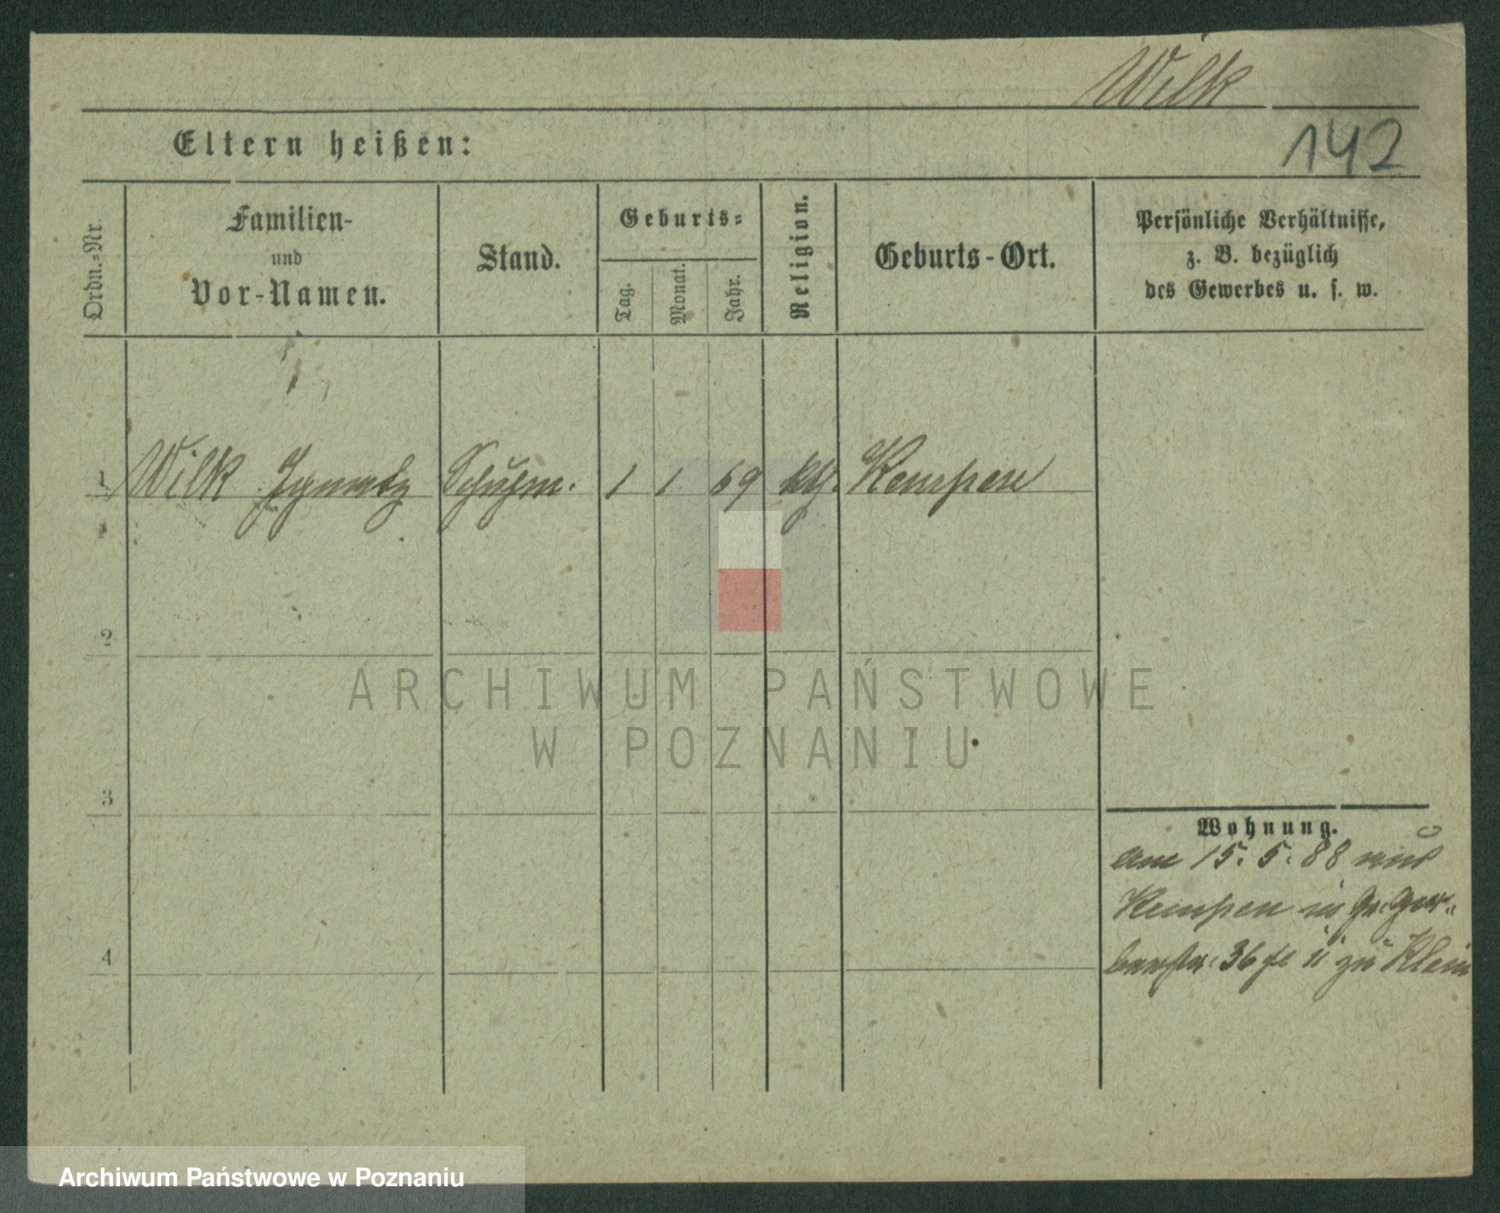 Wilk
Eltern heißen:
142
Ordn.-Nr.
Familien-
und
Vor-Namen.
Stand.
Geburts-
Tag.
Monat.
Jahr.
Religion.
Geburts-Ort.
Persönliche Verhältnisse,
z. B. bezüglich
des Gewerbes u. s. w.
1 Wilk Ignatz Schuhm. 1 1 69 kth. Kempen
2
ARCHIWUM PAŃSTWOWE
W POZNANIU
3
Wohnung.
am 15. 5. 88 aus
Kempen in Gr. Ger-
berstr. 36 zu Klein
4
Archiwum Państwowe w Poznaniu